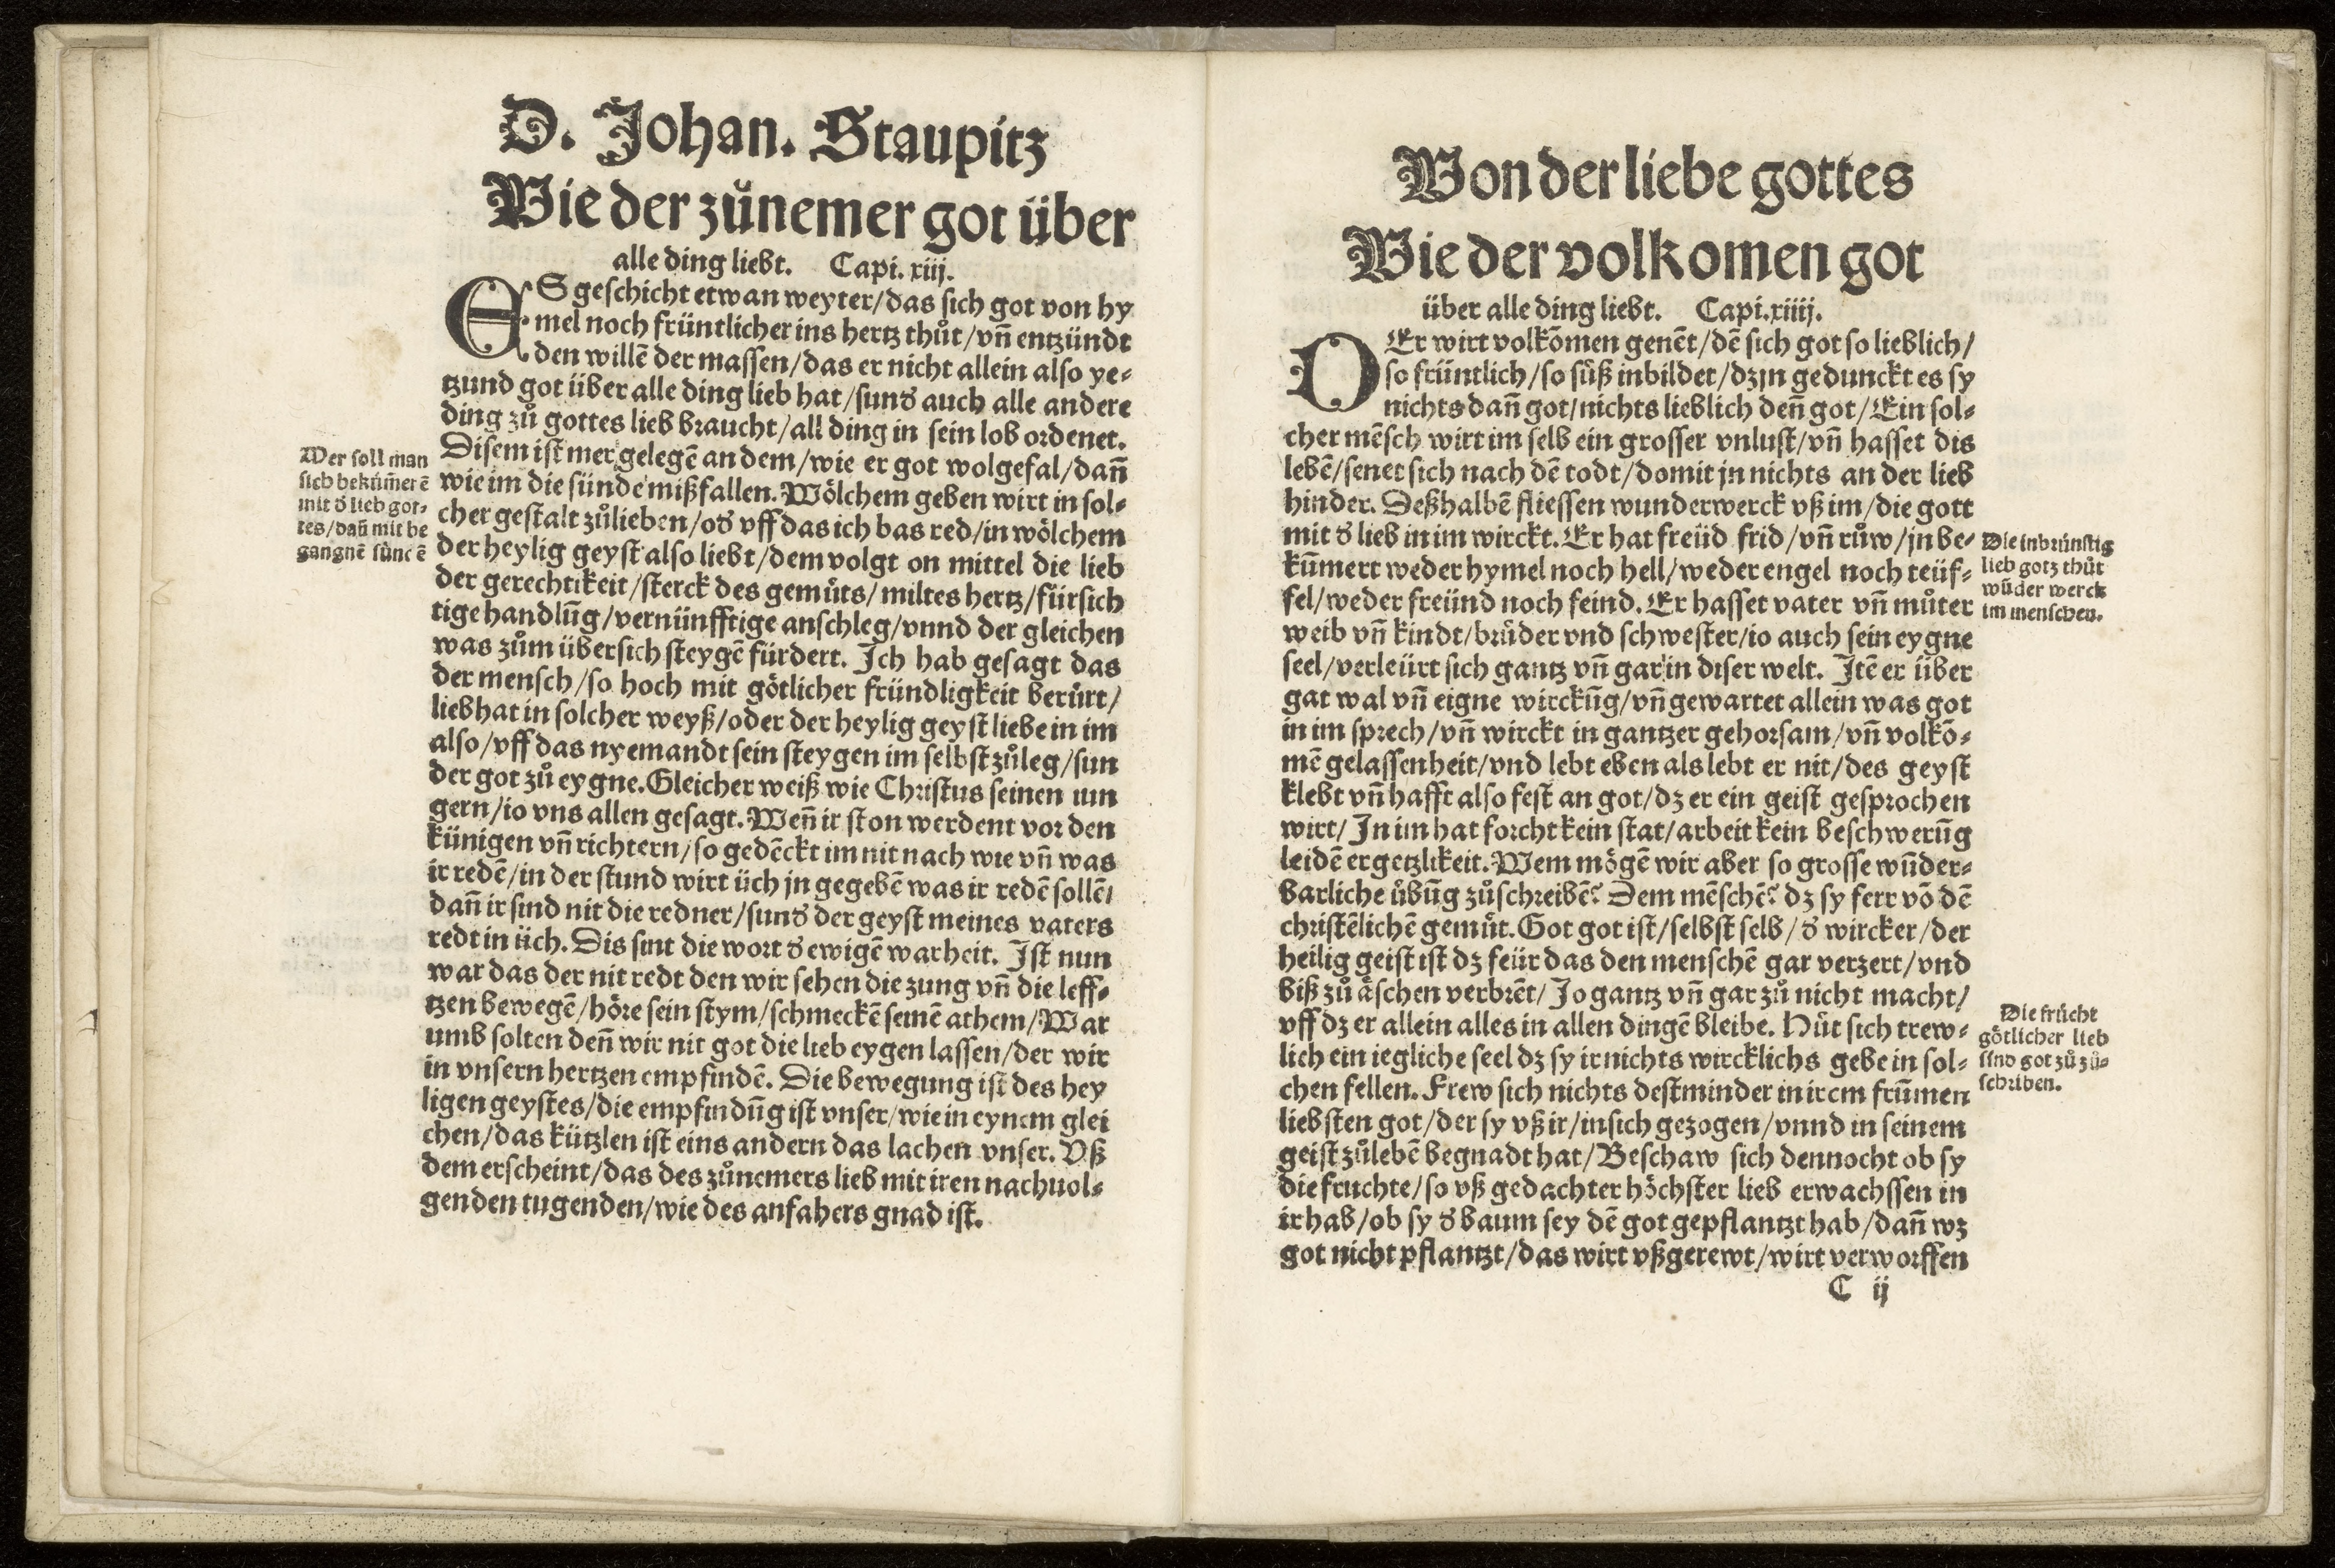 D. Johan. Staupitz
Wie der zůnemer got über
alle ding liebt. Capi. xiij.
ES geschicht etwan weyter/das sich got von hy
mel noch früntlicher ins hertz thůt/vñ entzündt
den willē der massen/das er nicht allein also ye-
tzund got über alle ding lieb hat/sunď auch alle andere
ding zů gottes lieb braucht/all ding in sein lob ordenet.
Disem ist mer gelegē an dem/wie er got wolgefal/dañ
wie im die sünde mißfallen. Wölchem geben wirt in sol-
cher gestalt zůlieben/oď vff das ich bas red/in wölchem
der heylig geyst also liebt/dem volgt on mittel die lieb
der gerechtikeit/sterck des gemůts/miltes hertz/fürsich
tige handlūg/vernünfftige anschleg/vnnd der gleichen
was zům übersich steygē fürdert. Ich hab gesagt das
der mensch/so hoch mit götlicher fründligkeit berůrt/
lieb hat in solcher weyß/oder der heylig geyst liebe in im
also/vff das nyemandt sein steygen im selbst zůleg/sun
der got zů eygne. Gleicher weiß wie Christus seinen iun
gern/io vns allen gesagt. Weñ ir ston werdent vor den
künigen vñ richtern/so gedēckt im nit nach wie vñ was
ir redē/in der stund wirt üch jn gegebē was ir redē sollē/
dañ ir sind nit die redner/sunď der geyst meines vaters
redt in üch. Dis sint die wort ď ewigē warheit. Ist nun
war das der nit redt den wir sehen die zung vñ die leff-
tzen bewegē/höre sein stym/schmeckē seinē athem/War
umb solten deñ wir nit got die lieb eygen lassen/der wir
in vnsern hertzen empfindē. Die bewegung ist des hey
ligen geystes/die empfindūg ist vnser/wie in eynem glei
chen/das kützlen ist eins andern das lachen vnser. Vß
dem erscheint/das des zůnemers lieb mit iren nachuol-
genden tugenden/wie des anfahers gnad ist.
Wer soll man
sich bekūmerē
mit ď lieb got-
tes/dañ mit be
gangnē sündē
Von der liebe gottes
Wie der volkomen got
über alle ding liebt. Capi. xiiij.
DEr wirt volkōmen genēt/dē sich got so lieblich/
so früntlich/so süß inbildet/dz jn gedunckt es sy
nichts dañ got/nichts lieblich deñ got/Ein sol-
cher mēsch wirt im selb ein grosser vnlust/vñ hasset dis
lebē/senet sich nach dē todt/domit jn nichts an der lieb
hinder. Deßhalbē fliessen wunderwerck vß im/die gott
mit ď lieb in im wirckt. Er hat freüd frid/vñ růw/jn be-
kūmert weder hymel noch hell/weder engel noch teüf-
fel/weder freünd noch feind. Er hasset vater vñ můter
weib vñ kindt/brůder vnd schwester/io auch sein eygne
seel/verleürt sich gantz vñ gar in diser welt. Itē er über
gat wal vñ eigne wirckūg/vñ gewartet allein was got
in im sprech/vñ wirckt in gantzer gehorsam/vñ volkō-
mē gelassenheit/vnd lebt eben als lebt er nit/des geyst
klebt vñ hafft also fest an got/dz er ein geist gesprochen
wirt/In im hat forcht kein stat/arbeit kein beschwerūg
leidē ergetzlikeit. Wem mögē wir aber so grosse wūder-
barliche übūg zůschreibē? Dem mēschē? dz sy ferr vō dē
christēlichē gemůt. Got got ist/selbst selb/ď wircker/der
heilig geist ist dz feür das den menschē gar verzert/vnd
biß zů äschen verbrēt/Jo gantz vñ gar zů nicht macht/
vff dz er allein alles in allen dingē bleibe. Hůt sich trew-
lich ein iegliche seel dz sy ir nichts wircklichs gebe in sol-
chen fellen. Frew sich nichts destminder in irem frūmen
liebsten got/der sy vß ir/insich gezogen/vnnd in seinem
geist zůlebē begnadt hat/Beschaw sich dennocht ob sy
die fruchte/so vß gedachter höchster lieb erwachssen in
ir hab/ob sy ď baum sey dē got gepflantzt hab/dañ wz
got nicht pflantzt/das wirt vßgerewt/wirt verworffen
C ij
Die inbrünstig
lieb gotz thůt
wūder werck
im menschen.
Die frücht
götlicher lieb
sind got zů zů-
schriben.